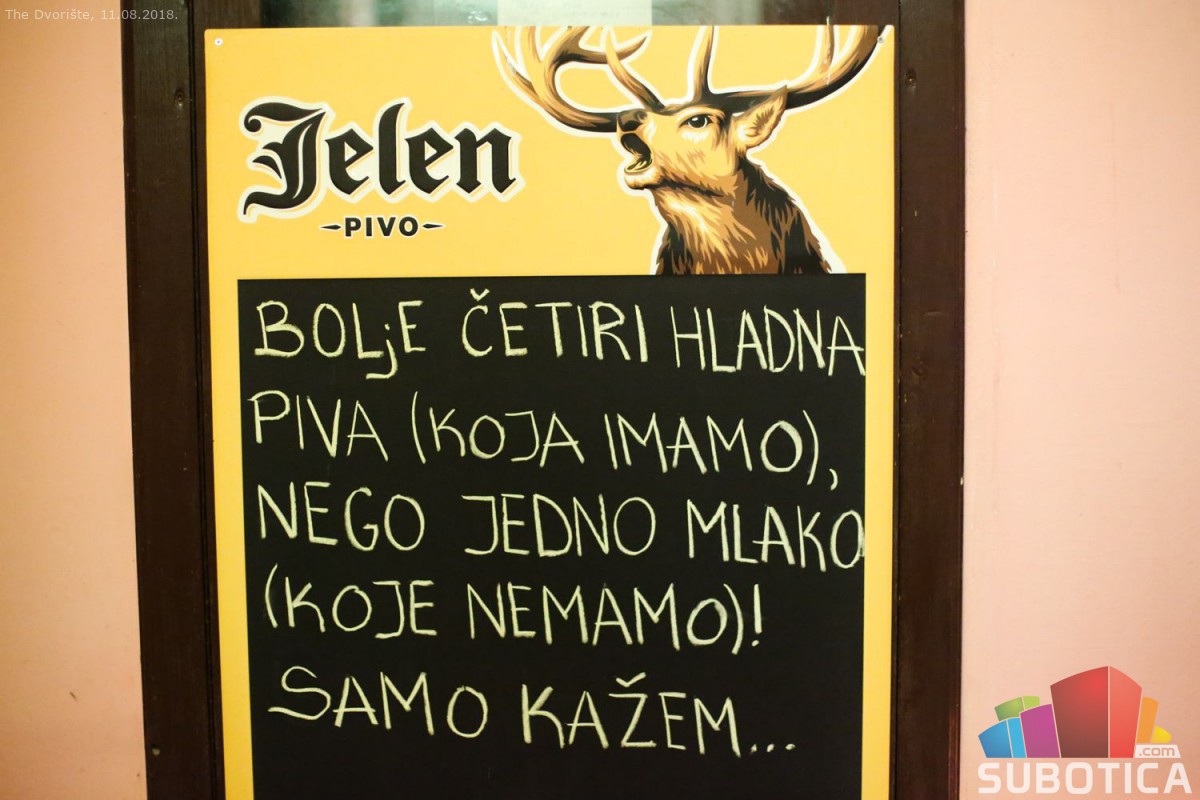 The Dvorište, 11.08.2018.
Jelen
PIVO
BOLjE ČETIRI HLADNA
PIVA (KOJA IMAMO),
NEGO JEDNO MLAKO
(KOJE NEMAMO)!
SAMO KAŽEM...
.com
SUBOTICA